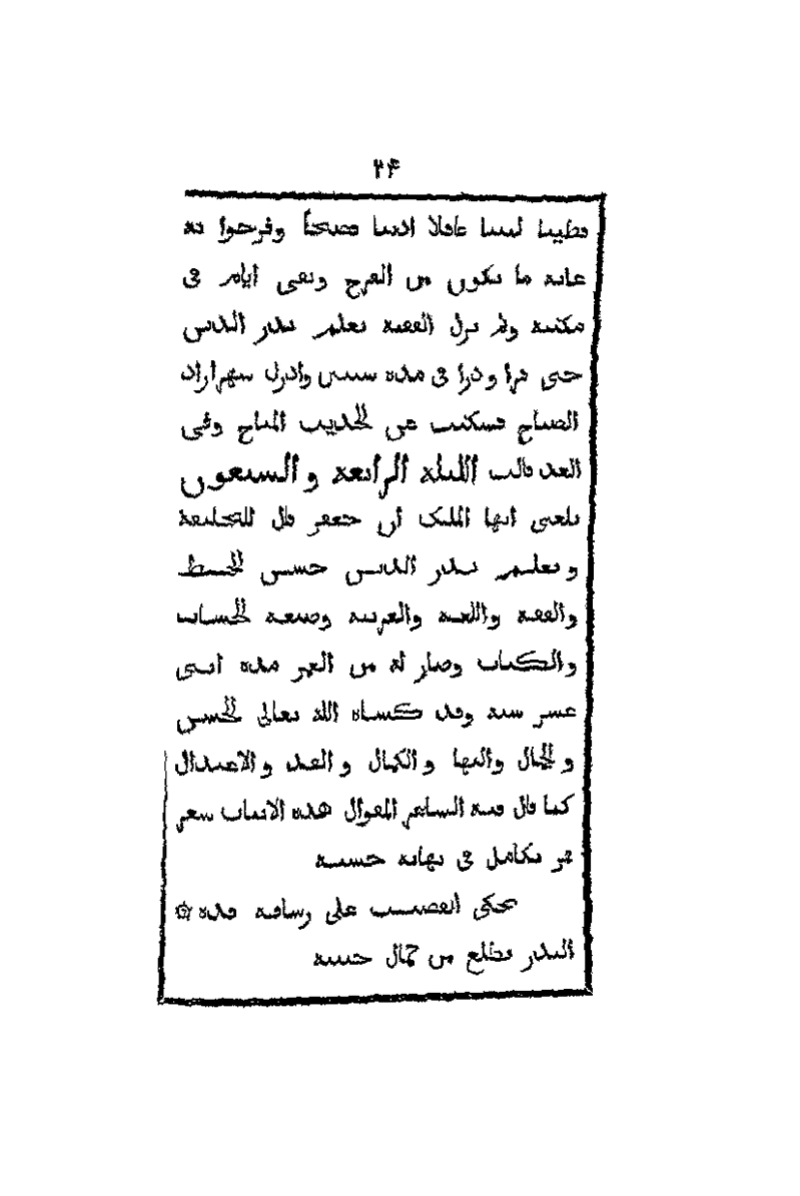 ٢۴
فطينا لبيبا عاقلا اديبا فصيحاً وفرحوا به
غاية ما يكون من الفرح وبقى ايام فى
مكتبه ولم يزل الفقيه يعلم بدر الدين
حتى قرا ودرا فى مده سنين وادرك شهرازاد
الصباح فسكتت عن الحديث المباح وفى
الغد قالت الليلة الرابعة والسبعون
بلغنى ايها الملك أن جعفر قال للخليفة
وتعلم بدر الدين حسن الخط
والفقه واللغة والعربية وصنعة الحساب
والكتاب وصار له من العمر مده اثنى
عشر سنه وقد كساه الله تعالى الحسن
والجمال والبها والكمال والقد والاعتدال
كما قال فيه الشاعر المقوال هذه الابيات شعر
قمر تكامل فى نهاية حسنه
يحكى القضيب على رشاقة قده ۞
البدر يطلع من جمال جبينه